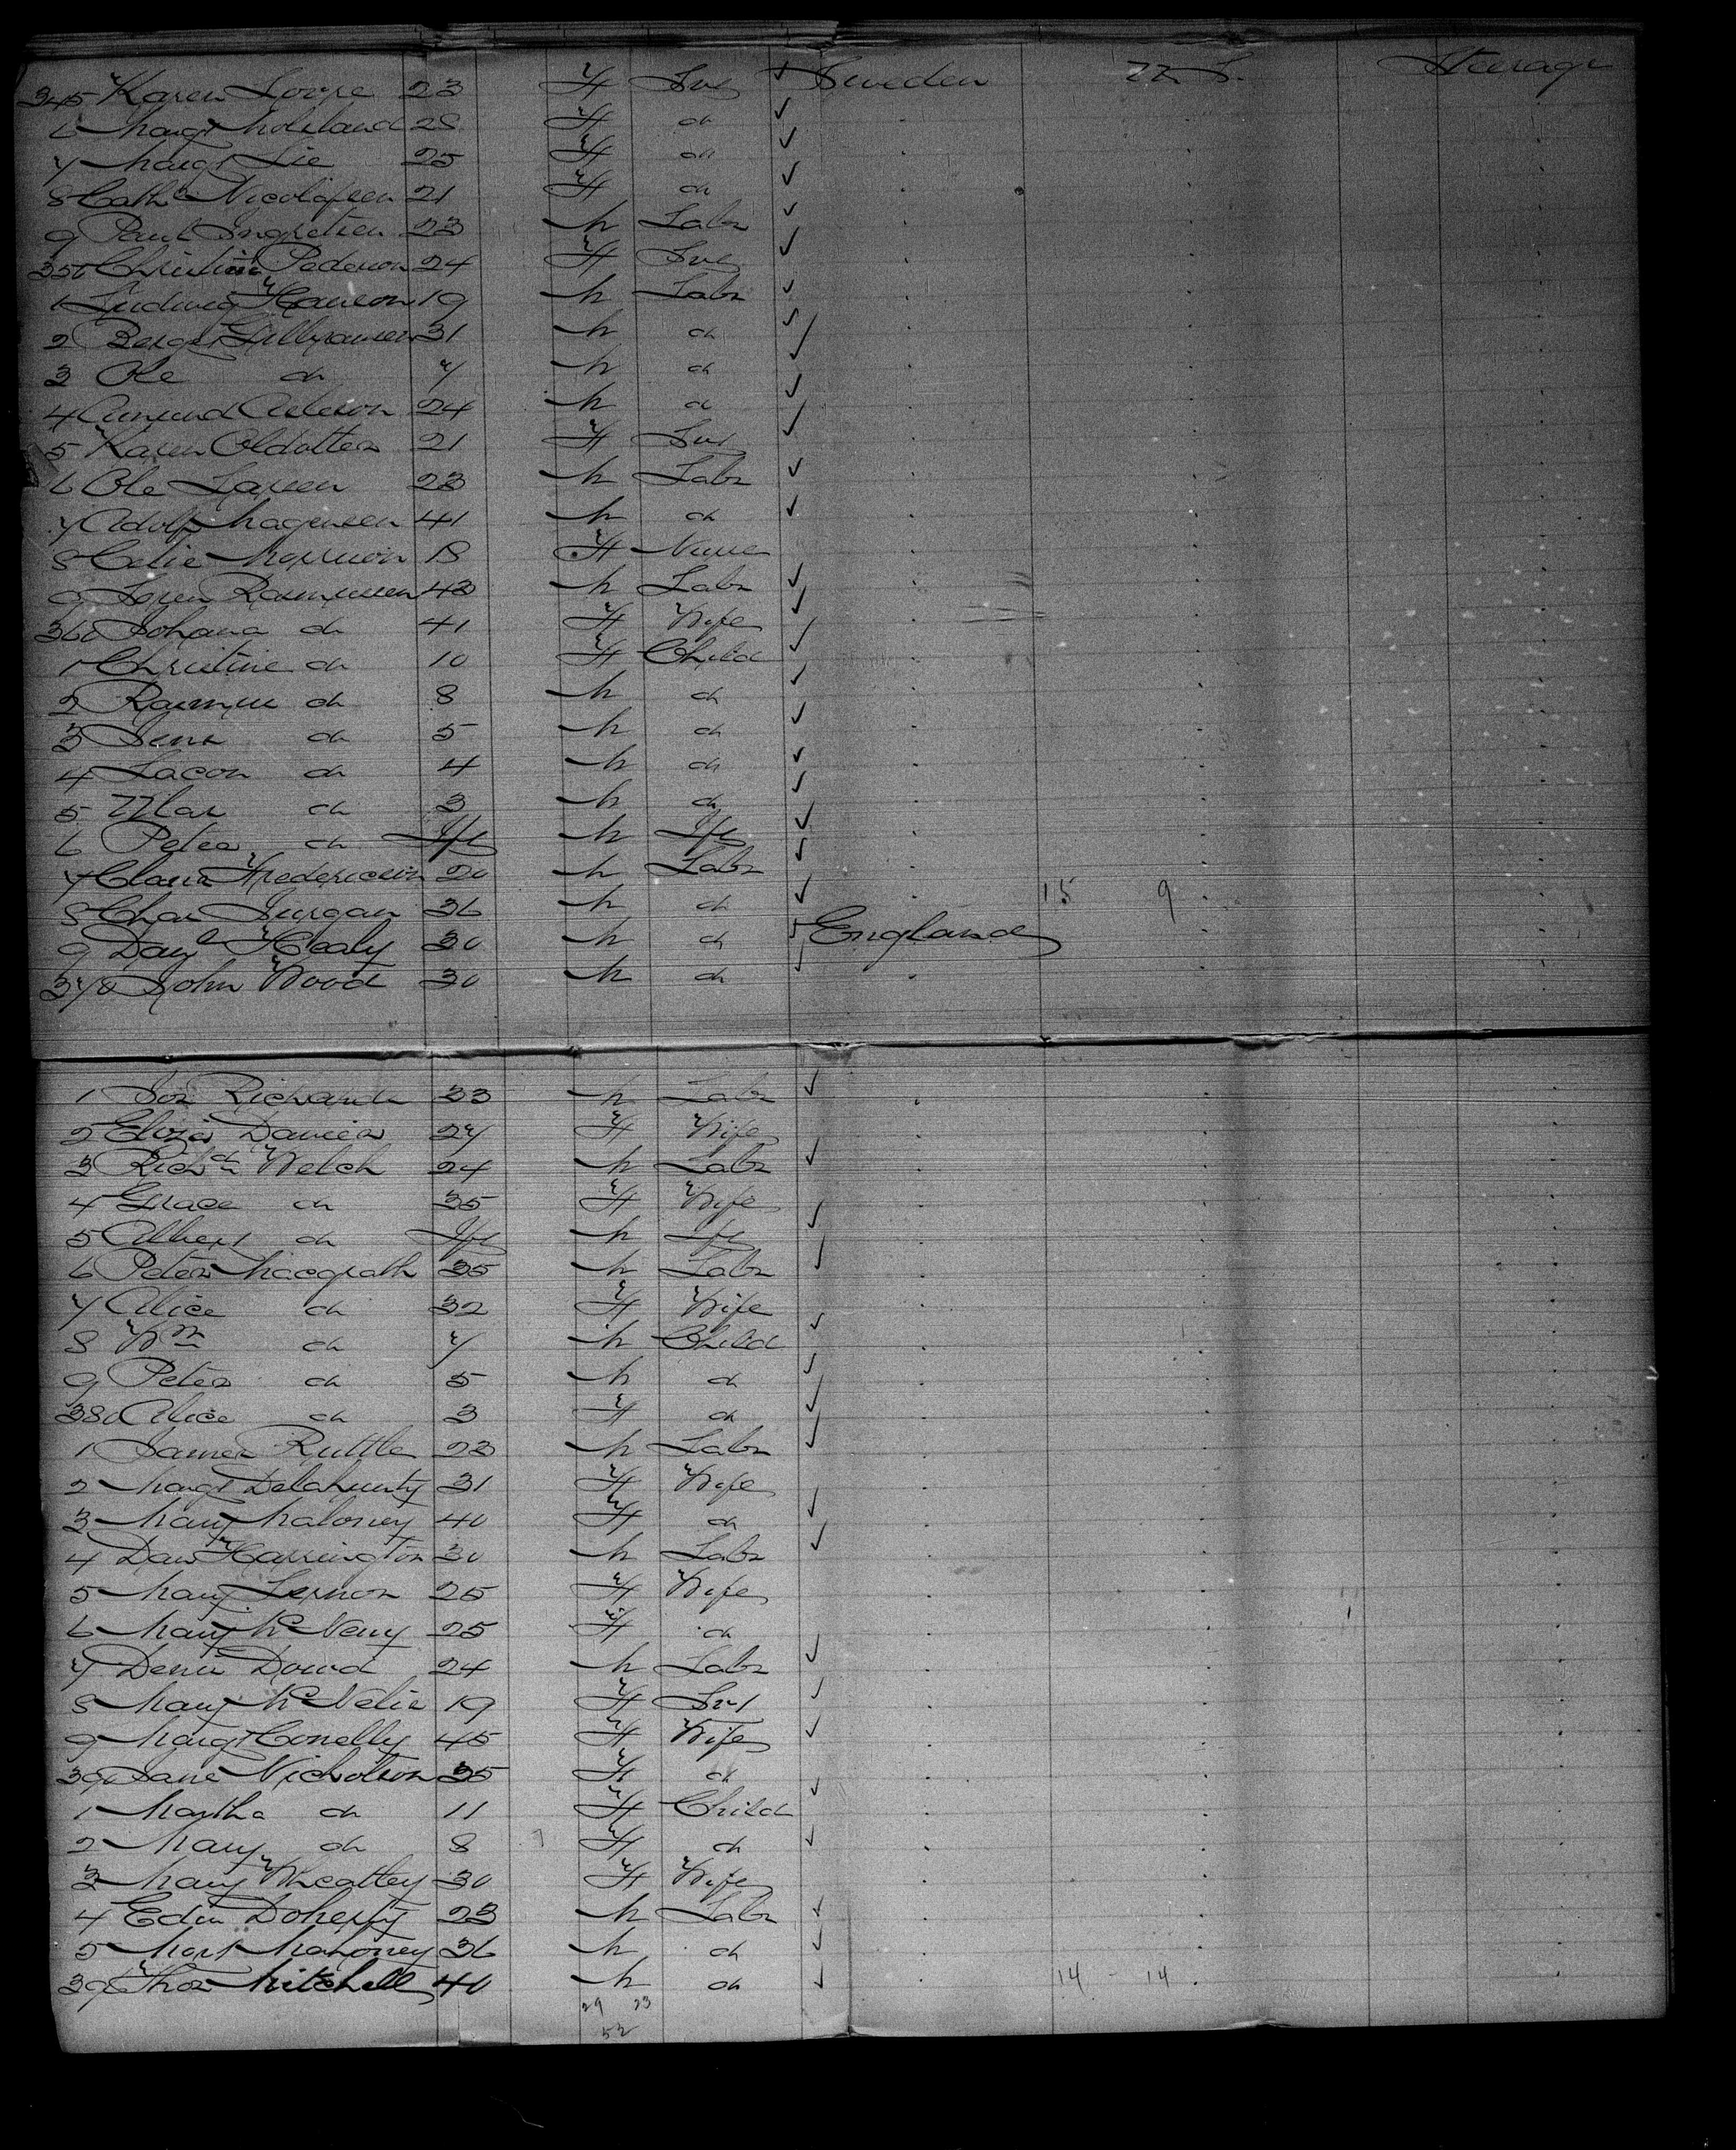 345 Karen 23 F Svt Sweden U S. Steerage
6 Margt Moleland 28 F do
7 Margt Lie 25 F do
8 Cathe Nicolajsen 21 F do
9 Paul Ingretsen 23 M Labr
350 Christine Pederson 24 F Svt
1 Ludwig Hanson 19 M Labr
2 Bergt 31 M do
3 Ole do 7 M do
4 Amund 24 M do
5 Karen Oldatter 21 F Svt
6 Ole Larsen 23 M Labr
7 Adolf Magensen 41 M do
8 Celie 18 F Nurse
9 Soren Rasmussen 43 M Labr
360 Johana do 41 F Wife
1 Christine do 10 F Child
2 Rasmus do 8 M do
3 Jens do 5 M do
4 Lacon do 4 M do
5 do 3 M do
6 Peter do Inft M Inft
7 Claus Fredericson 20 M Labr
8 Chas Jurgan 36 M do 15 9
9 Danl Healy 30 M do England
370 John Wood 30 M do
1 Jos Richards 33 M Labr
2 Eliza Davies 27 F Wife
3 Richd Welch 24 M Labr
4 Grace do 35 F Wife
5 Albert do Inft M Inft
6 Peter Macgrath 35 M Labr
7 Alice do 32 F Wife
8 Wm do 7 M Child
9 Peter do 5 M do
380 Alice do 3 F do
1 James Ruttle 23 M Labr
2 Margt Delahunty 31 F Wife
3 Mary Maloney 40 F do
4 Dan Harrington 30 M Labr
5 Mary Lernon 25 F Wife
6 Mary McNeny 25 F do
7 Denis Dowd 24 M Labr
8 Mary McNelis 19 F Svt
9 Margt Conelly 45 F Wife
390 Jane Nicholson 35 F do
1 Martha do 11 F Child
2 Mary do 8 F do
3 Mary Wheatley 30 F Wife
4 Edw Doherty 23 M Labr
5 Mort Mahoney 36 M do
396 Thos Mitchell 40 M do 14 - 14
29 23
52